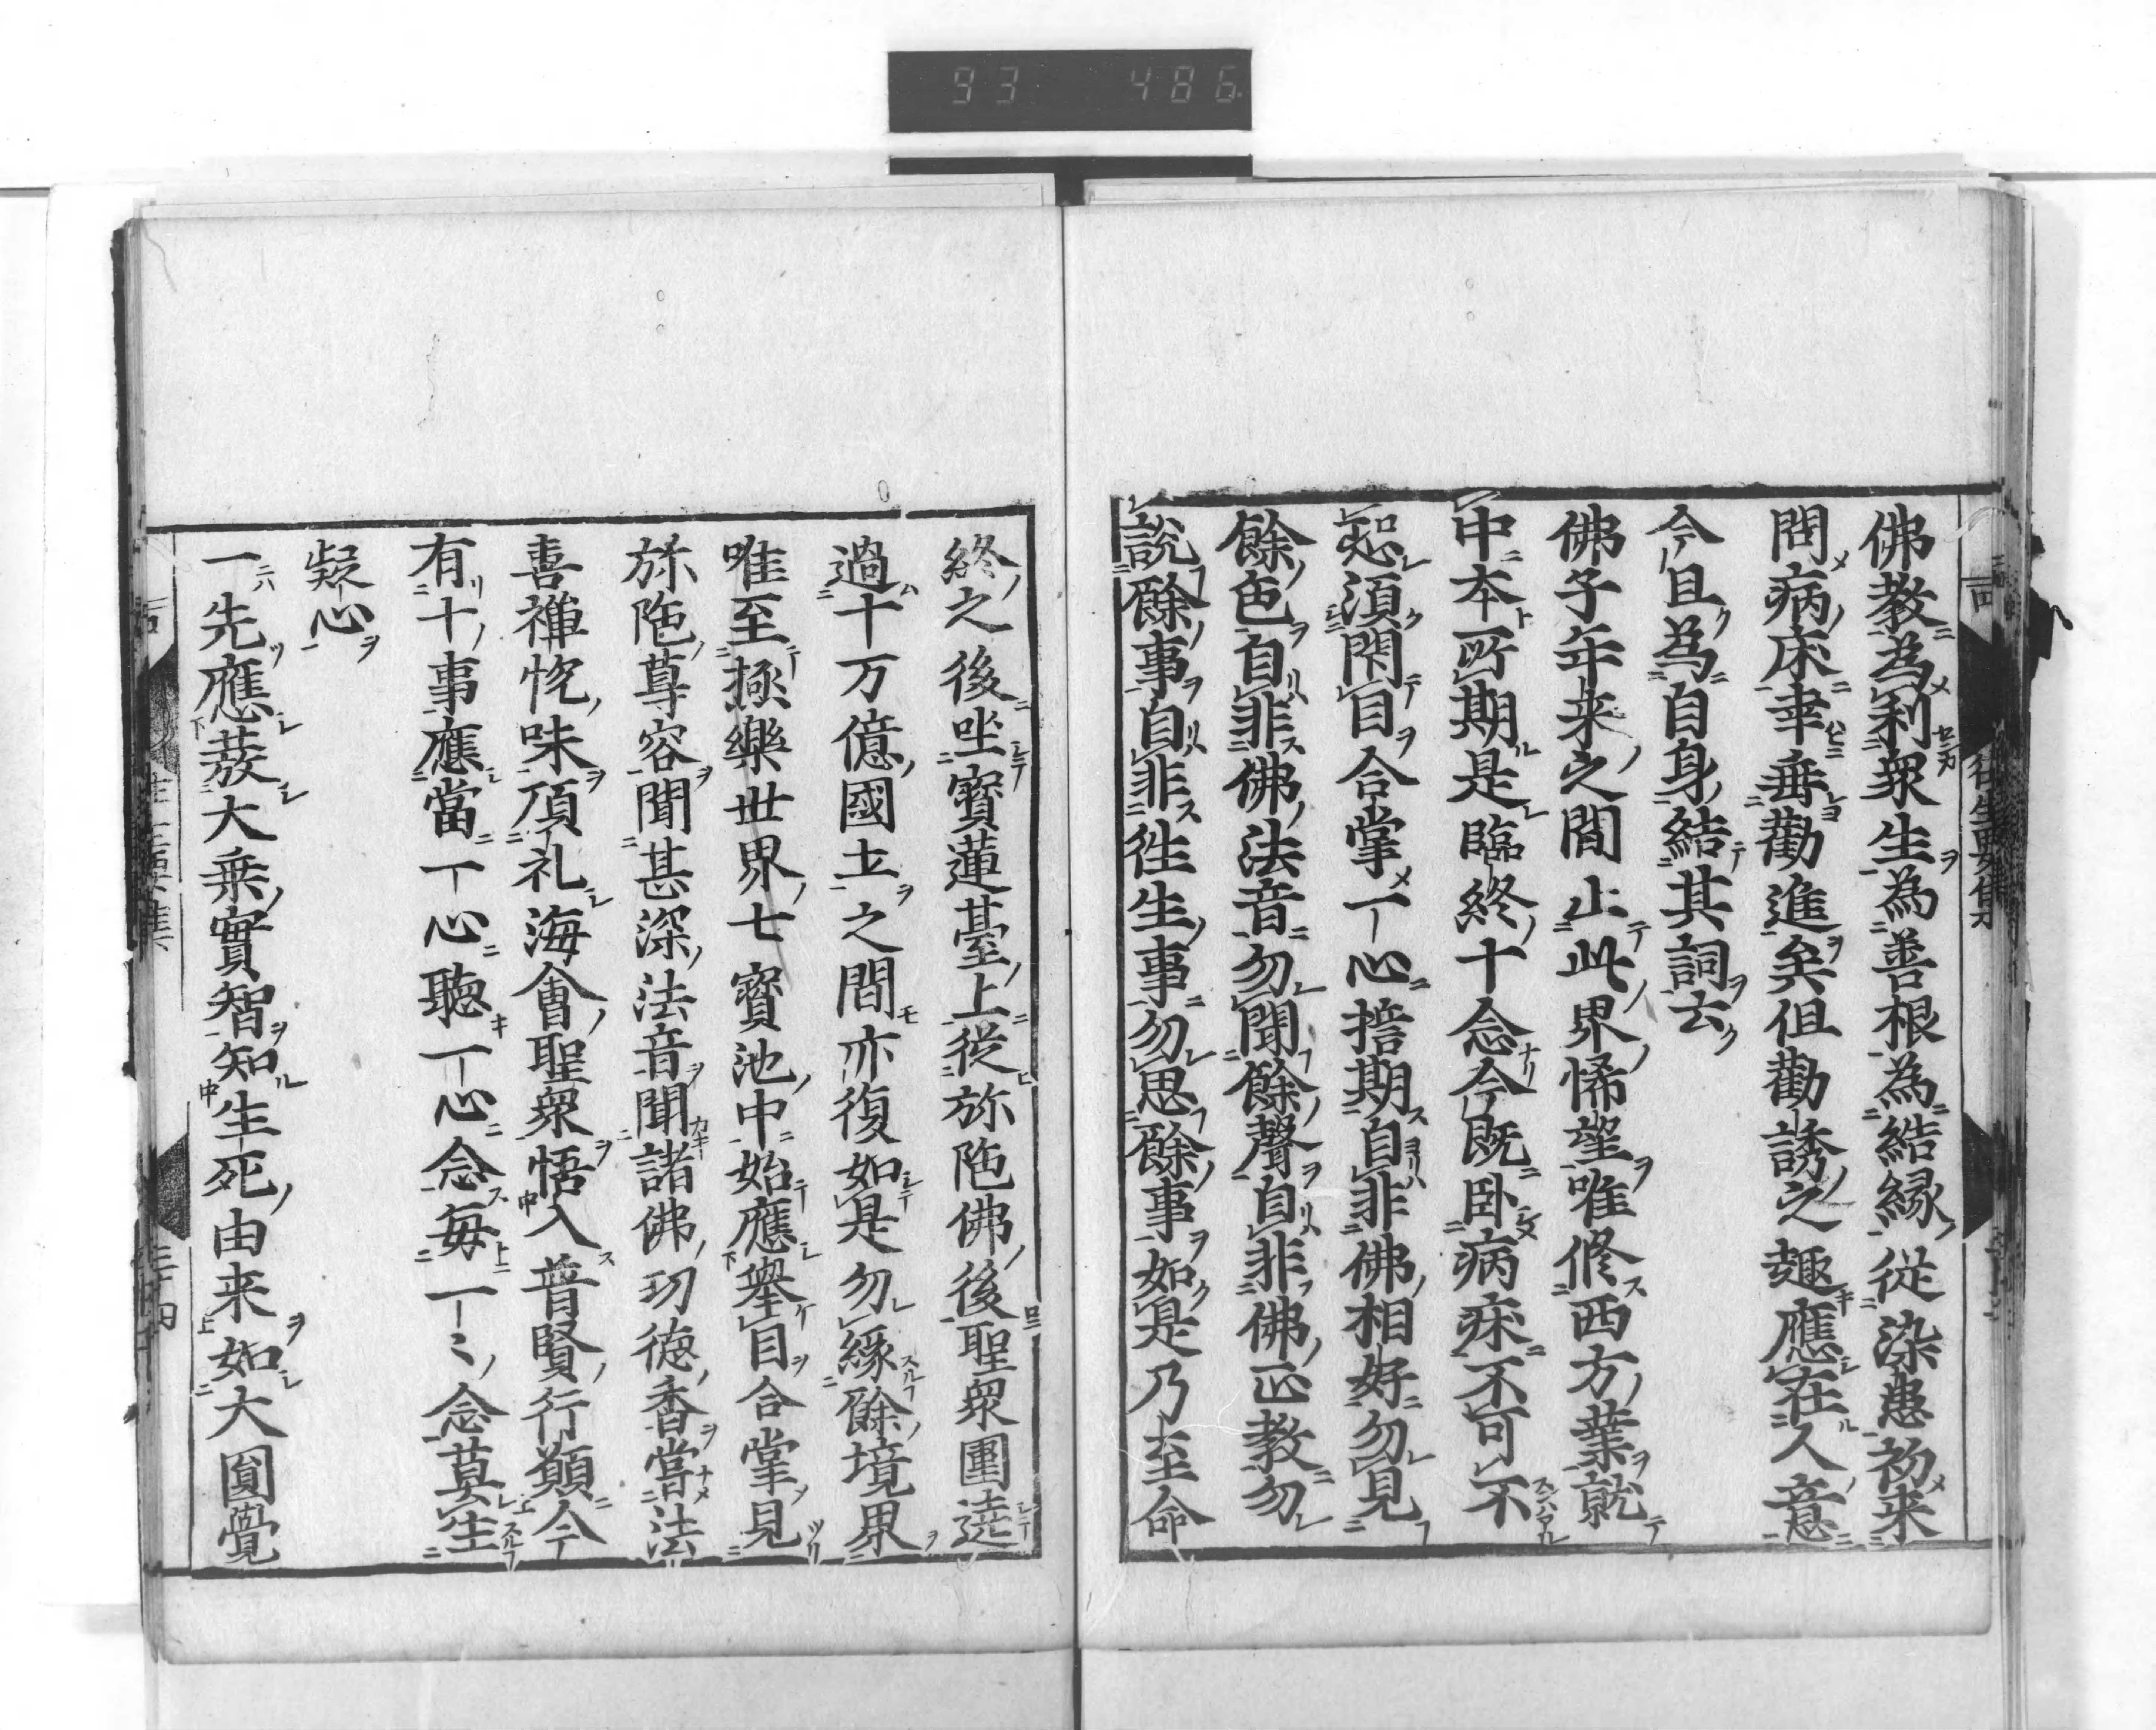 93 486
佛教為利衆生為善根為結縁從染患初来
問病床幸垂勸進矣但勸誘之趣應在人意
今且為自身結其詞云
佛子年来之間止此界悕望唯修西方業就
中本所期是臨終十念今既卧病床不可不
恐須閇目合掌一心誓期自非佛相好勿見
餘色自非佛法音勿聞餘聲自非佛正教勿
説餘事自非徃生事勿思餘事如是乃至命
終之後坐寳蓮臺上從弥陁佛後聖衆圍遶
過十万億國土之間亦復如是勿縁餘境界
唯至極樂世界七寳池中始應舉目合掌見
弥陁尊容聞甚深法音聞諸佛功徳香甞法
喜禅悦味頂礼海會聖衆悟入普賢行願今
有十事應當一心聽一心念毎一〻念莫生
疑心
一先應發大乗實智知生死由来如大圓覺